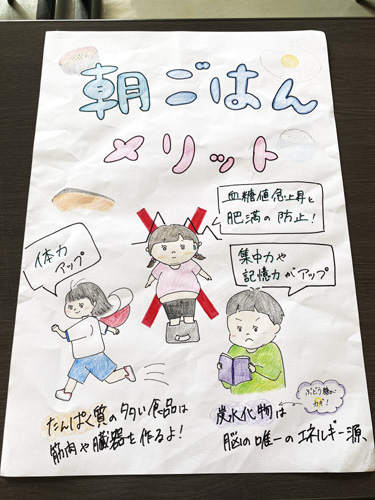 朝ごはん
メリット
血糖値急上昇と
肥満の防止!
体力
アップ
集中力や
記憶力がアップ
たんぱく質の多い食品は
筋肉や臓器を作るよ!
ぶどう糖が
カギ!
炭水化物は
脳の唯一のエネルギー源、